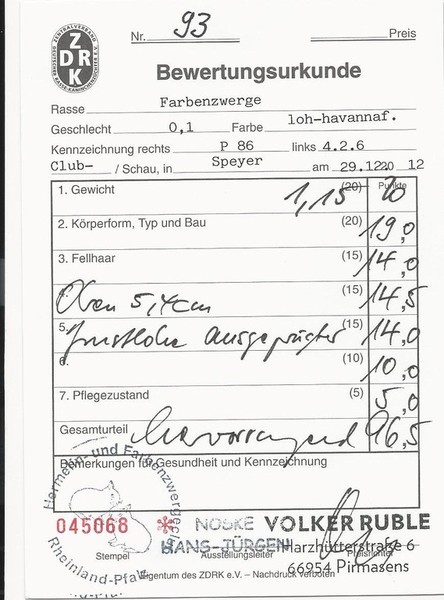 ZENTRALVERBAND
DEUTSCHER RASSE-KANINCHENZÜCHTER E.V.
ZDRK
Nr. 93 Preis
Bewertungsurkunde
Rasse Farbenzwerge
Geschlecht 0,1 Farbe loh-havannaf.
Kennzeichnung rechts P 86 links 4.2.6
Club- / Schau, in Speyer am 29.12.20 12
Punkte
1. Gewicht 1,15 (20) 20
2. Körperform, Typ und Bau (20) 19,0
3. Fellhaar (15) 14,0
Ohren 5,4cm (15) 14,5
5. ausgeprägter (15) 14,0
6. (10) 10,0
7. Pflegezustand (5) 5,0
Gesamturteil hervorragend 96,5
Bemerkungen für Gesundheit und Kennzeichnung
Hermelin- und Farbenzwergeclub
Rheinland-Pfalz
045068 * NOSKE VOLKER RUBLE
HANS-JÜRGEN Harzhütterstraße 6
Stempel Ausstellungsleiter Preisrichter
66954 Pirmasens
Eigentum des ZDRK e.V. – Nachdruck verboten